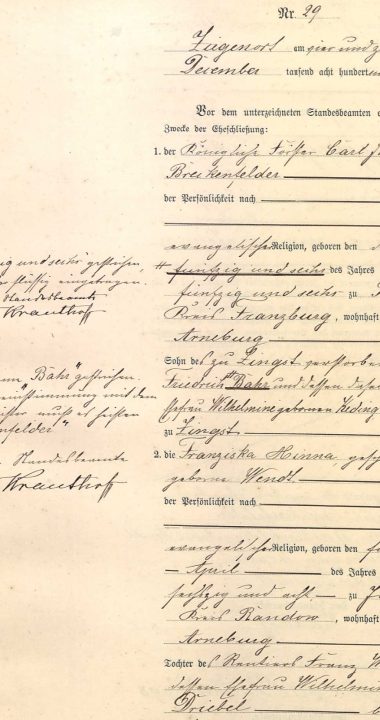 Nr. 29
Ziegenort am vier und z
Dezember tausend acht hundert
Vor dem unterzeichneten Standesbeamten
Zwecke der Eheschließung:
1. der Königliche Förster Carl
Breikenfelder
der Persönlichkeit nach
evangelischer Religion, geboren den
# fünfzig und sechs des Jahres
fünfzig und sechs zu
Kreis Franzburg, wohnhaft
Arneburg
Sohn des zu Zingst verstorbe
Friedrich # Bahr und dessen
Ehefrau Wilhelmine geborenen
zu Zingst.
2. die Franziska Minna, gesch
geborne Wendt.
der Persönlichkeit nach
evangelischer Religion, geboren den
April des Jahres
sechszig und acht zu
Kreis Randow, wohnhaft
Arneburg
Tochter des Rentiers Franz W
dessen Ehefrau Wilhelmi
Driebel
g und sechs gestrichen,
eingetragen.
Standesbeamte
Krauthoff
"Bahr" gestrichen.
mit dem
muß es heißen
nfelder"
Standesbeamte
Krauthoff